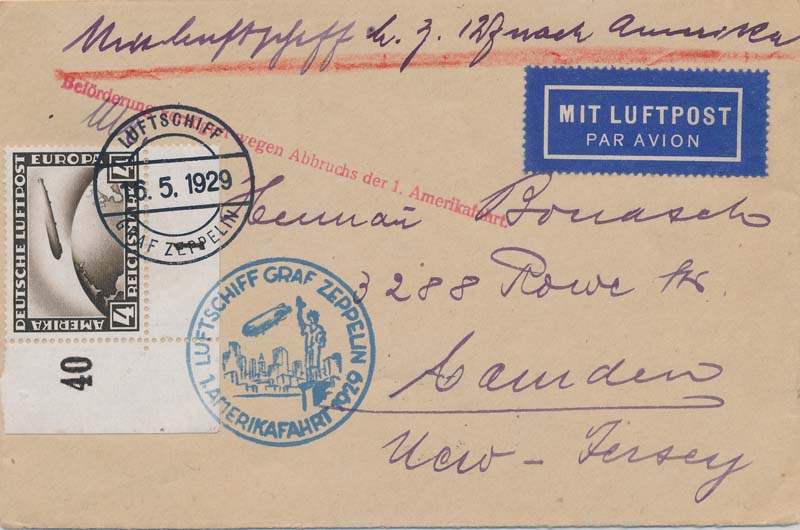 Mit Luftschiff L. Z. 127 nach Amerika
Beförderung wegen Abbruchs der 1. Amerikafahrt.
MIT LUFTPOST
PAR AVION
LUFTSCHIFF
16. 5. 1929
GRAF ZEPPELIN
EUROPA
DEUTSCHE LUFTPOST
4 REICHSMARK 4
AMERIKA
40
Bonasch
3288 Rowe Str.
Camden
New-Jersey
LUFTSCHIFF GRAF ZEPPELIN
1. AMERIKAFAHRT 1929